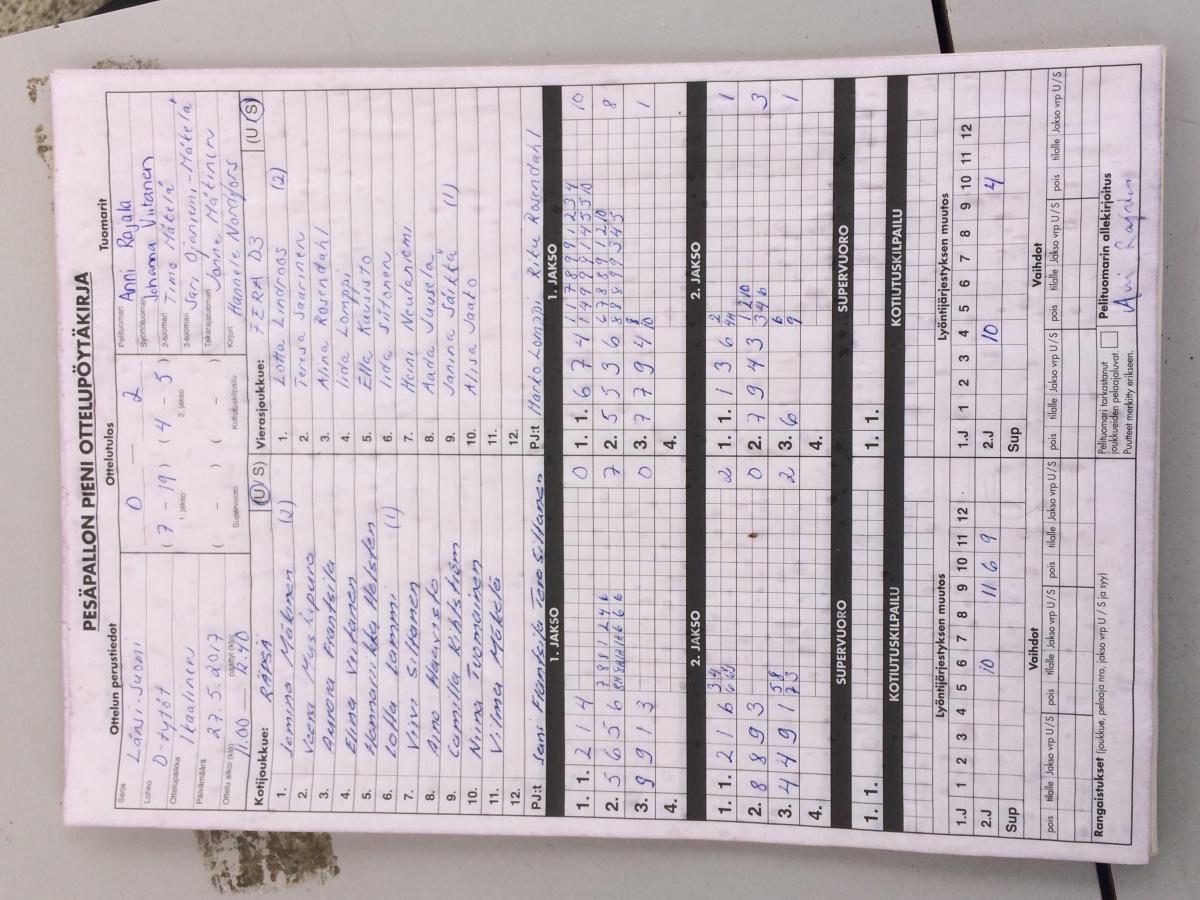 PESÄPALLON PIENI OTTELUPÖYTÄKIRJA
Ottelun perustiedot
Ottelutulos
Tuomarit
Sarja Länsi-Suomi
Lohko D-tytöt
Ottelupaikka Ikaalinen
Päivämäärä 27.5.2017
Ottelu alkoi (klo) 11.00 päättyi (klo) 12.40
0 — 2
( 7 - 19 ) ( 4 - 5 )
1. jakso 2. jakso
( - ) ( - )
Supervuoro Kotiutuskilpailu
Pelituomari Anni Rajala
Syöttötuomari Johanna Viitanen
2-tuomari Timo Mäkelä
3-tuomari Sari Ojaniemi-Mäkelä
Takarajatuomari Janne Mätinen
Kirjuri Hannele Nordfors
Kotijoukkue: RÄPSÄ (U/S)
1. Jemina Mäkinen (2)
2. Veera Myllpuro
3. Aurora Frantsila
4. Elina Virtanen
5. Hannariikka Hellsten
6. Lotta Lammi (1)
7. Viivi Siltanen
8. Aino Haavisto
9. Camilla Kihlström
10. Niina Tuomainen
11. Vilma Mäkelä
12.
PJ:t Sani Frantsila Tero Siltanen
Vierasjoukkue: FERA D3 (U/S)
1. Lotta Lindroos (2)
2. Teresa Saarinen
3. Alina Rosendahl
4. Iida Lomppi
5. Ella Kuusisto
6. Iida Siitonen
7. Heni Neulaniemi
8. Aada Juusela
9. Janina Sälkkä (1)
10. Alisa Jaato
11.
12.
PJ:t Marko Lomppi Riku Rosendahl
1. JAKSO
1. 1. 2 1 4 0
2. 5 6 5 6 7
3. 9 9 1 3 0
4.
1. JAKSO
1. 1. 6 7 4 10
2. 5 5 3 6 8
3. 7 7 9 4 1
4.
2. JAKSO
1. 1. 2 1 6 2
2. 8 8 9 3 0
3. 4 4 9 1 2
4.
2. JAKSO
1. 1. 1 3 6 1
2. 7 9 4 3 3
3. 6 1
4.
SUPERVUORO
1. 1.
SUPERVUORO
1. 1.
KOTIUTUSKILPAILU
KOTIUTUSKILPAILU
Lyöntijärjestyksen muutos
1.J 1 2 3 4 5 6 7 8 9 10 11 12
2.J 10 11 6 9
Sup
Lyöntijärjestyksen muutos
1.J 1 2 3 4 5 6 7 8 9 10 11 12
2.J 10 4
Sup
Vaihdot
pois tilalle Jakso vrp U/S pois tilalle Jakso vrp U/S pois tilalle Jakso vrp U/S
Vaihdot
pois tilalle Jakso vrp U/S pois tilalle Jakso vrp U/S pois tilalle Jakso vrp U/S
Rangaistukset (joukkue, pelaaja nro, jakso vrp U / S ja syy)
Pelituomari tarkastanut
joukkueiden pelaajaluvat.
Puutteet merkitty erikseen.
Pelituomarin allekirjoitus